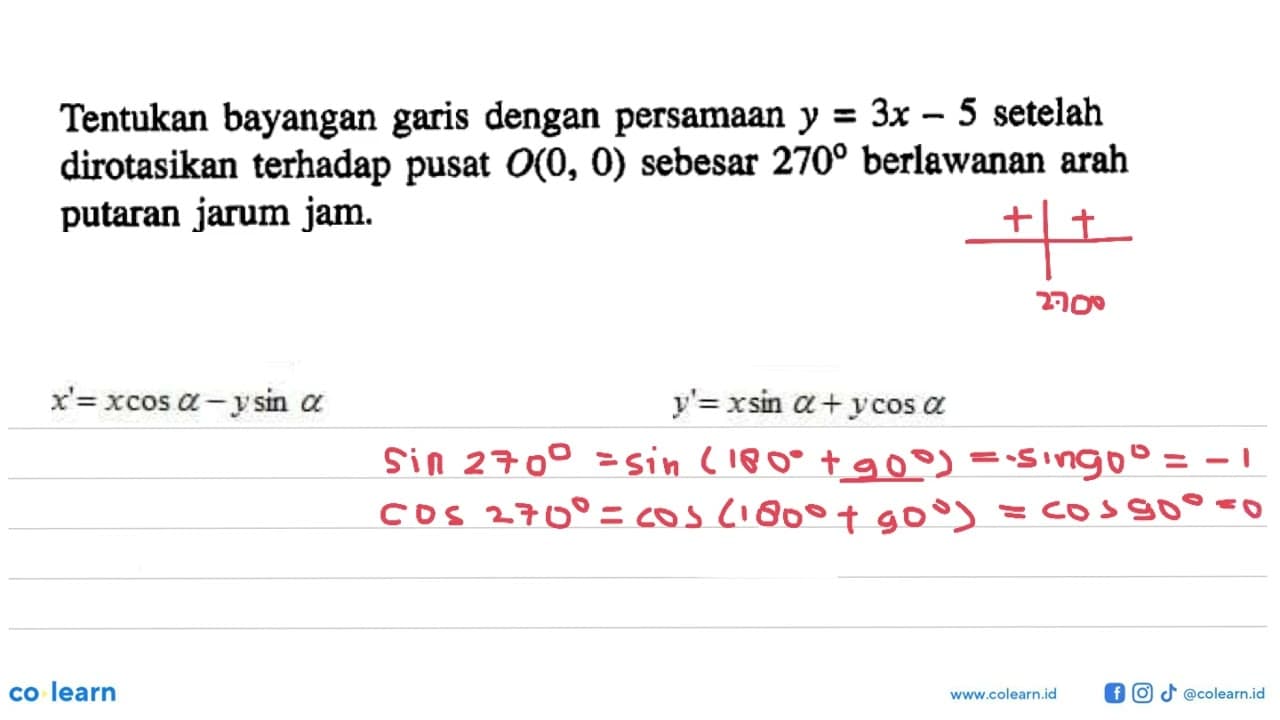 Tentukan bayangan garis dengan persamaan y = 3x – 5 setelah
dirotasikan terhadap pusat O(0, 0) sebesar 270° berlawanan arah
putaran jarum jam.
+ +
270°
x'= x cos α – y sin α
y'= x sin α + y cos α
sin 270° = sin (180° + 90°) = -sin 90° = -1
cos 270° = cos (180° + 90°) = cos 90° = 0
co learn
www.colearn.id
@colearn.id